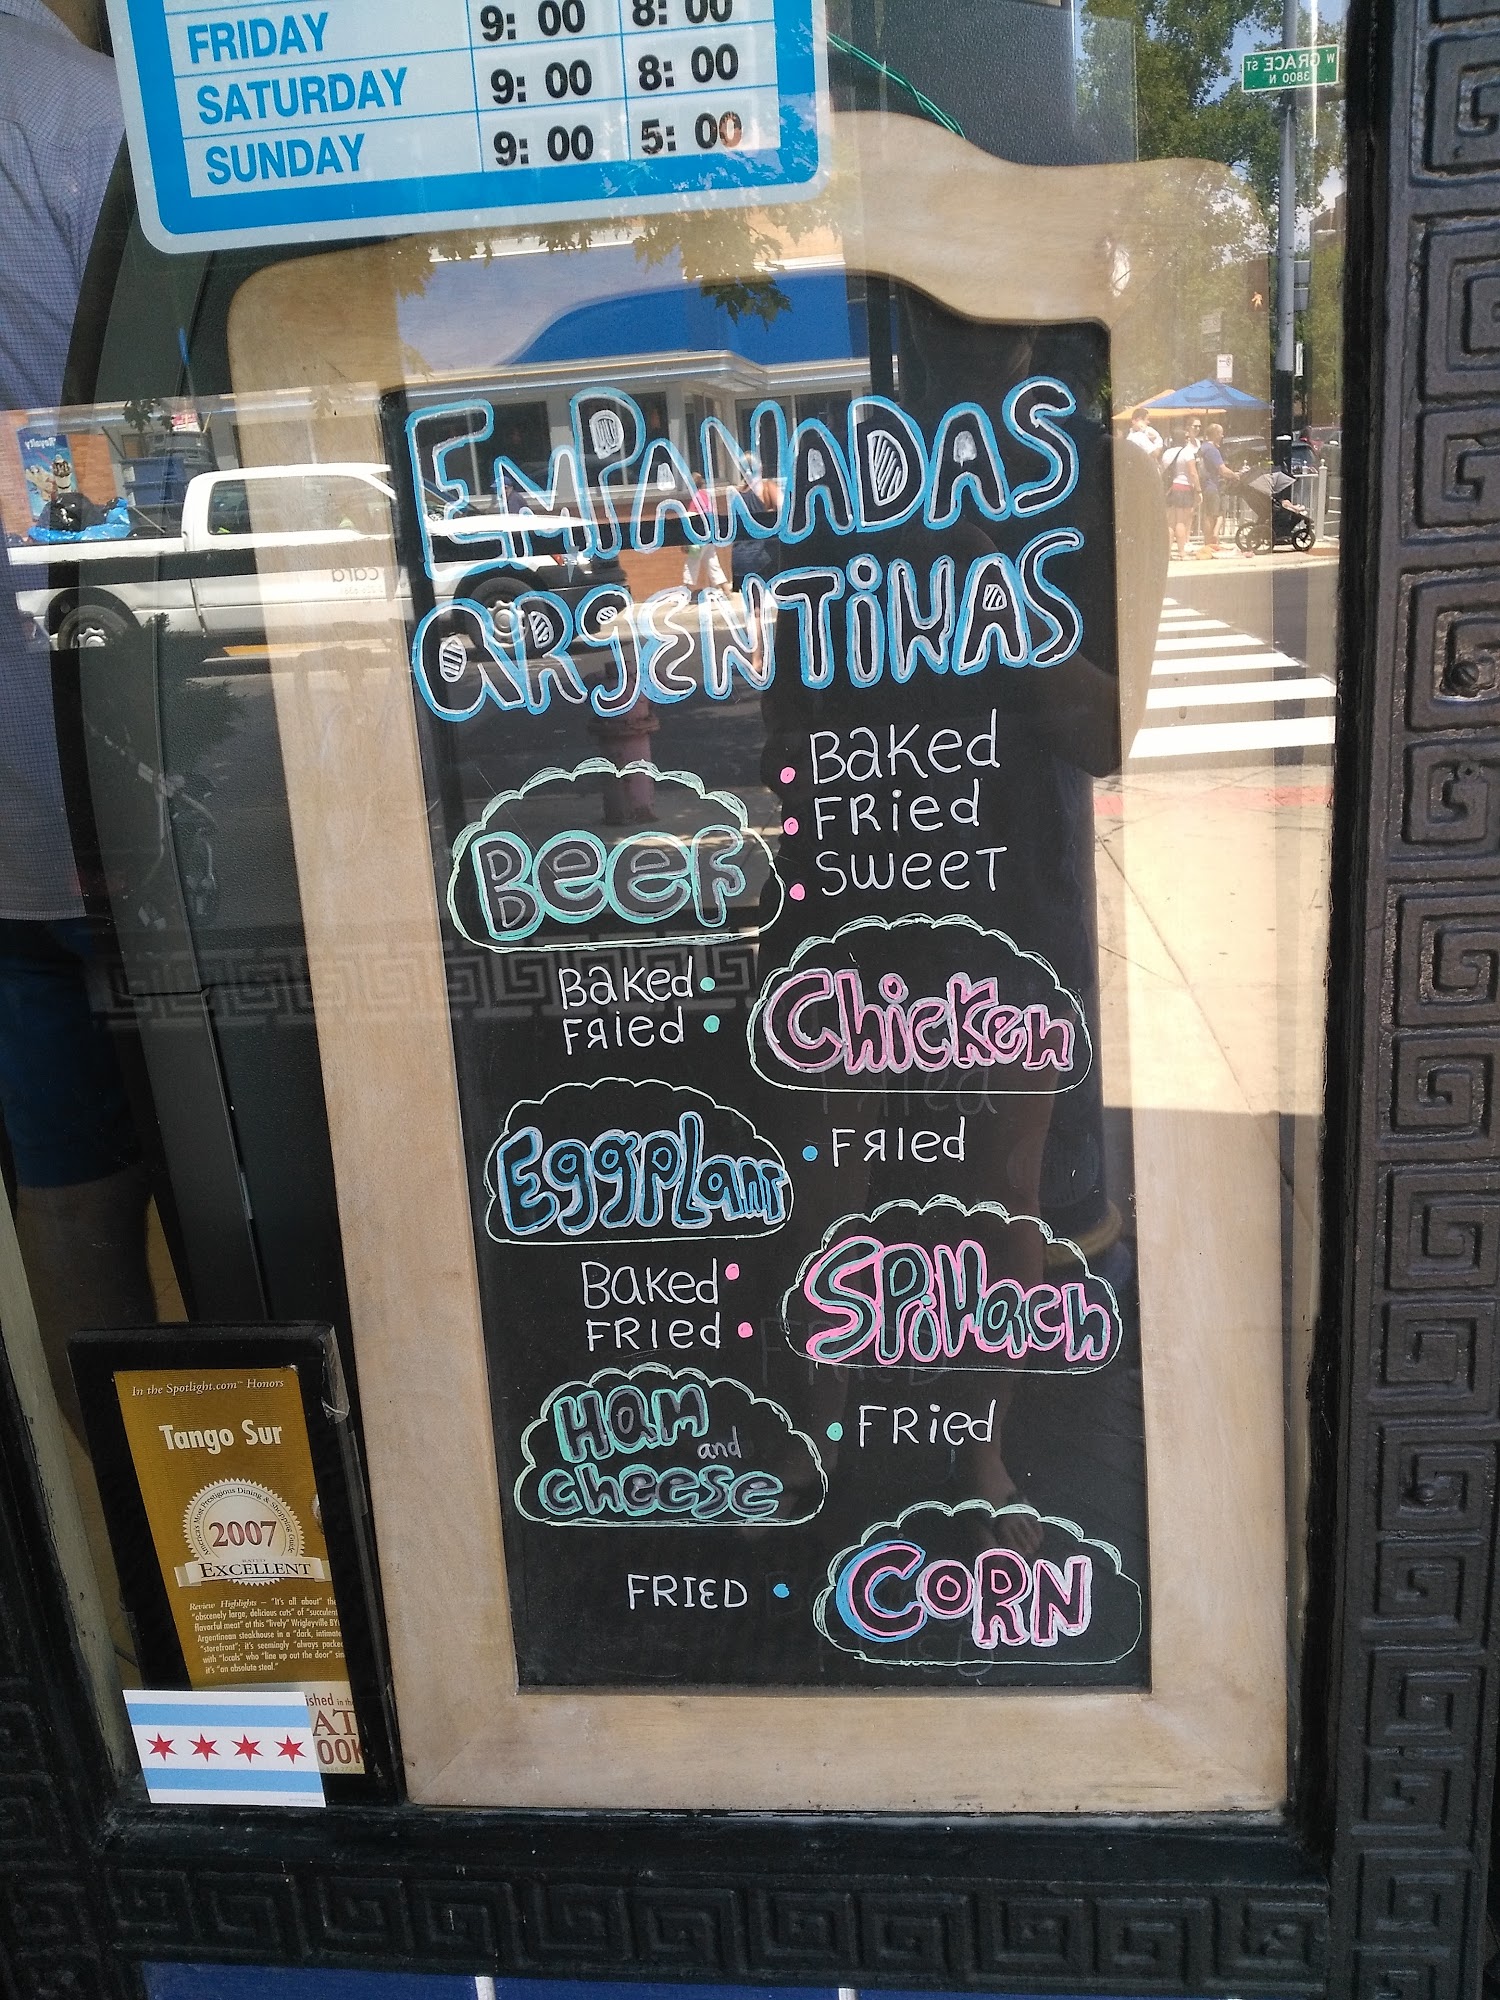 FRIDAY 9: 00 8: 00
SATURDAY 9: 00 8: 00
SUNDAY 9: 00 5: 00
W GRACE ST
3800 N
EMPANADAS
ARGENTINAS
Beef
Baked
Fried
Sweet
Baked
Fried
Chicken
Eggplant
Fried
Baked
Fried
Spinach
Ham and
cheese
Fried
FRIED
CORN
In the Spotlight.com™ Honors
Tango Sur
America's Most Prestigious Dining & Shopping Guide
2007
RATED
EXCELLENT
Review Highlights – "It's all about" the
"obscenely large, delicious cuts" of "succulent
flavorful meat" at this "lively" Wrigleyville BY
Argentinean steakhouse in a "dark, intimate
"storefront"; it's seemingly "always packed
with "locals" who "line up out the door"
it's "an absolute steal."